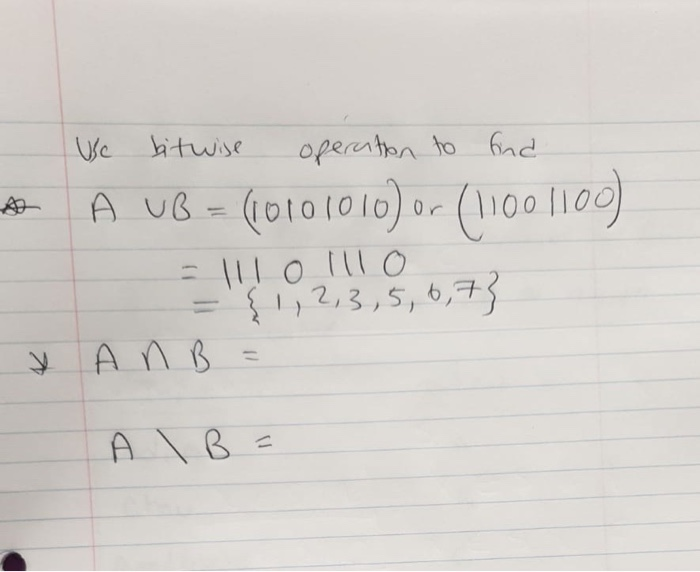 Use bitwise operation to find
A ∪ B = (10101010) or (11001100)
= 11101110
= {1, 2, 3, 5, 6, 7}
A ∩ B =
A \ B =